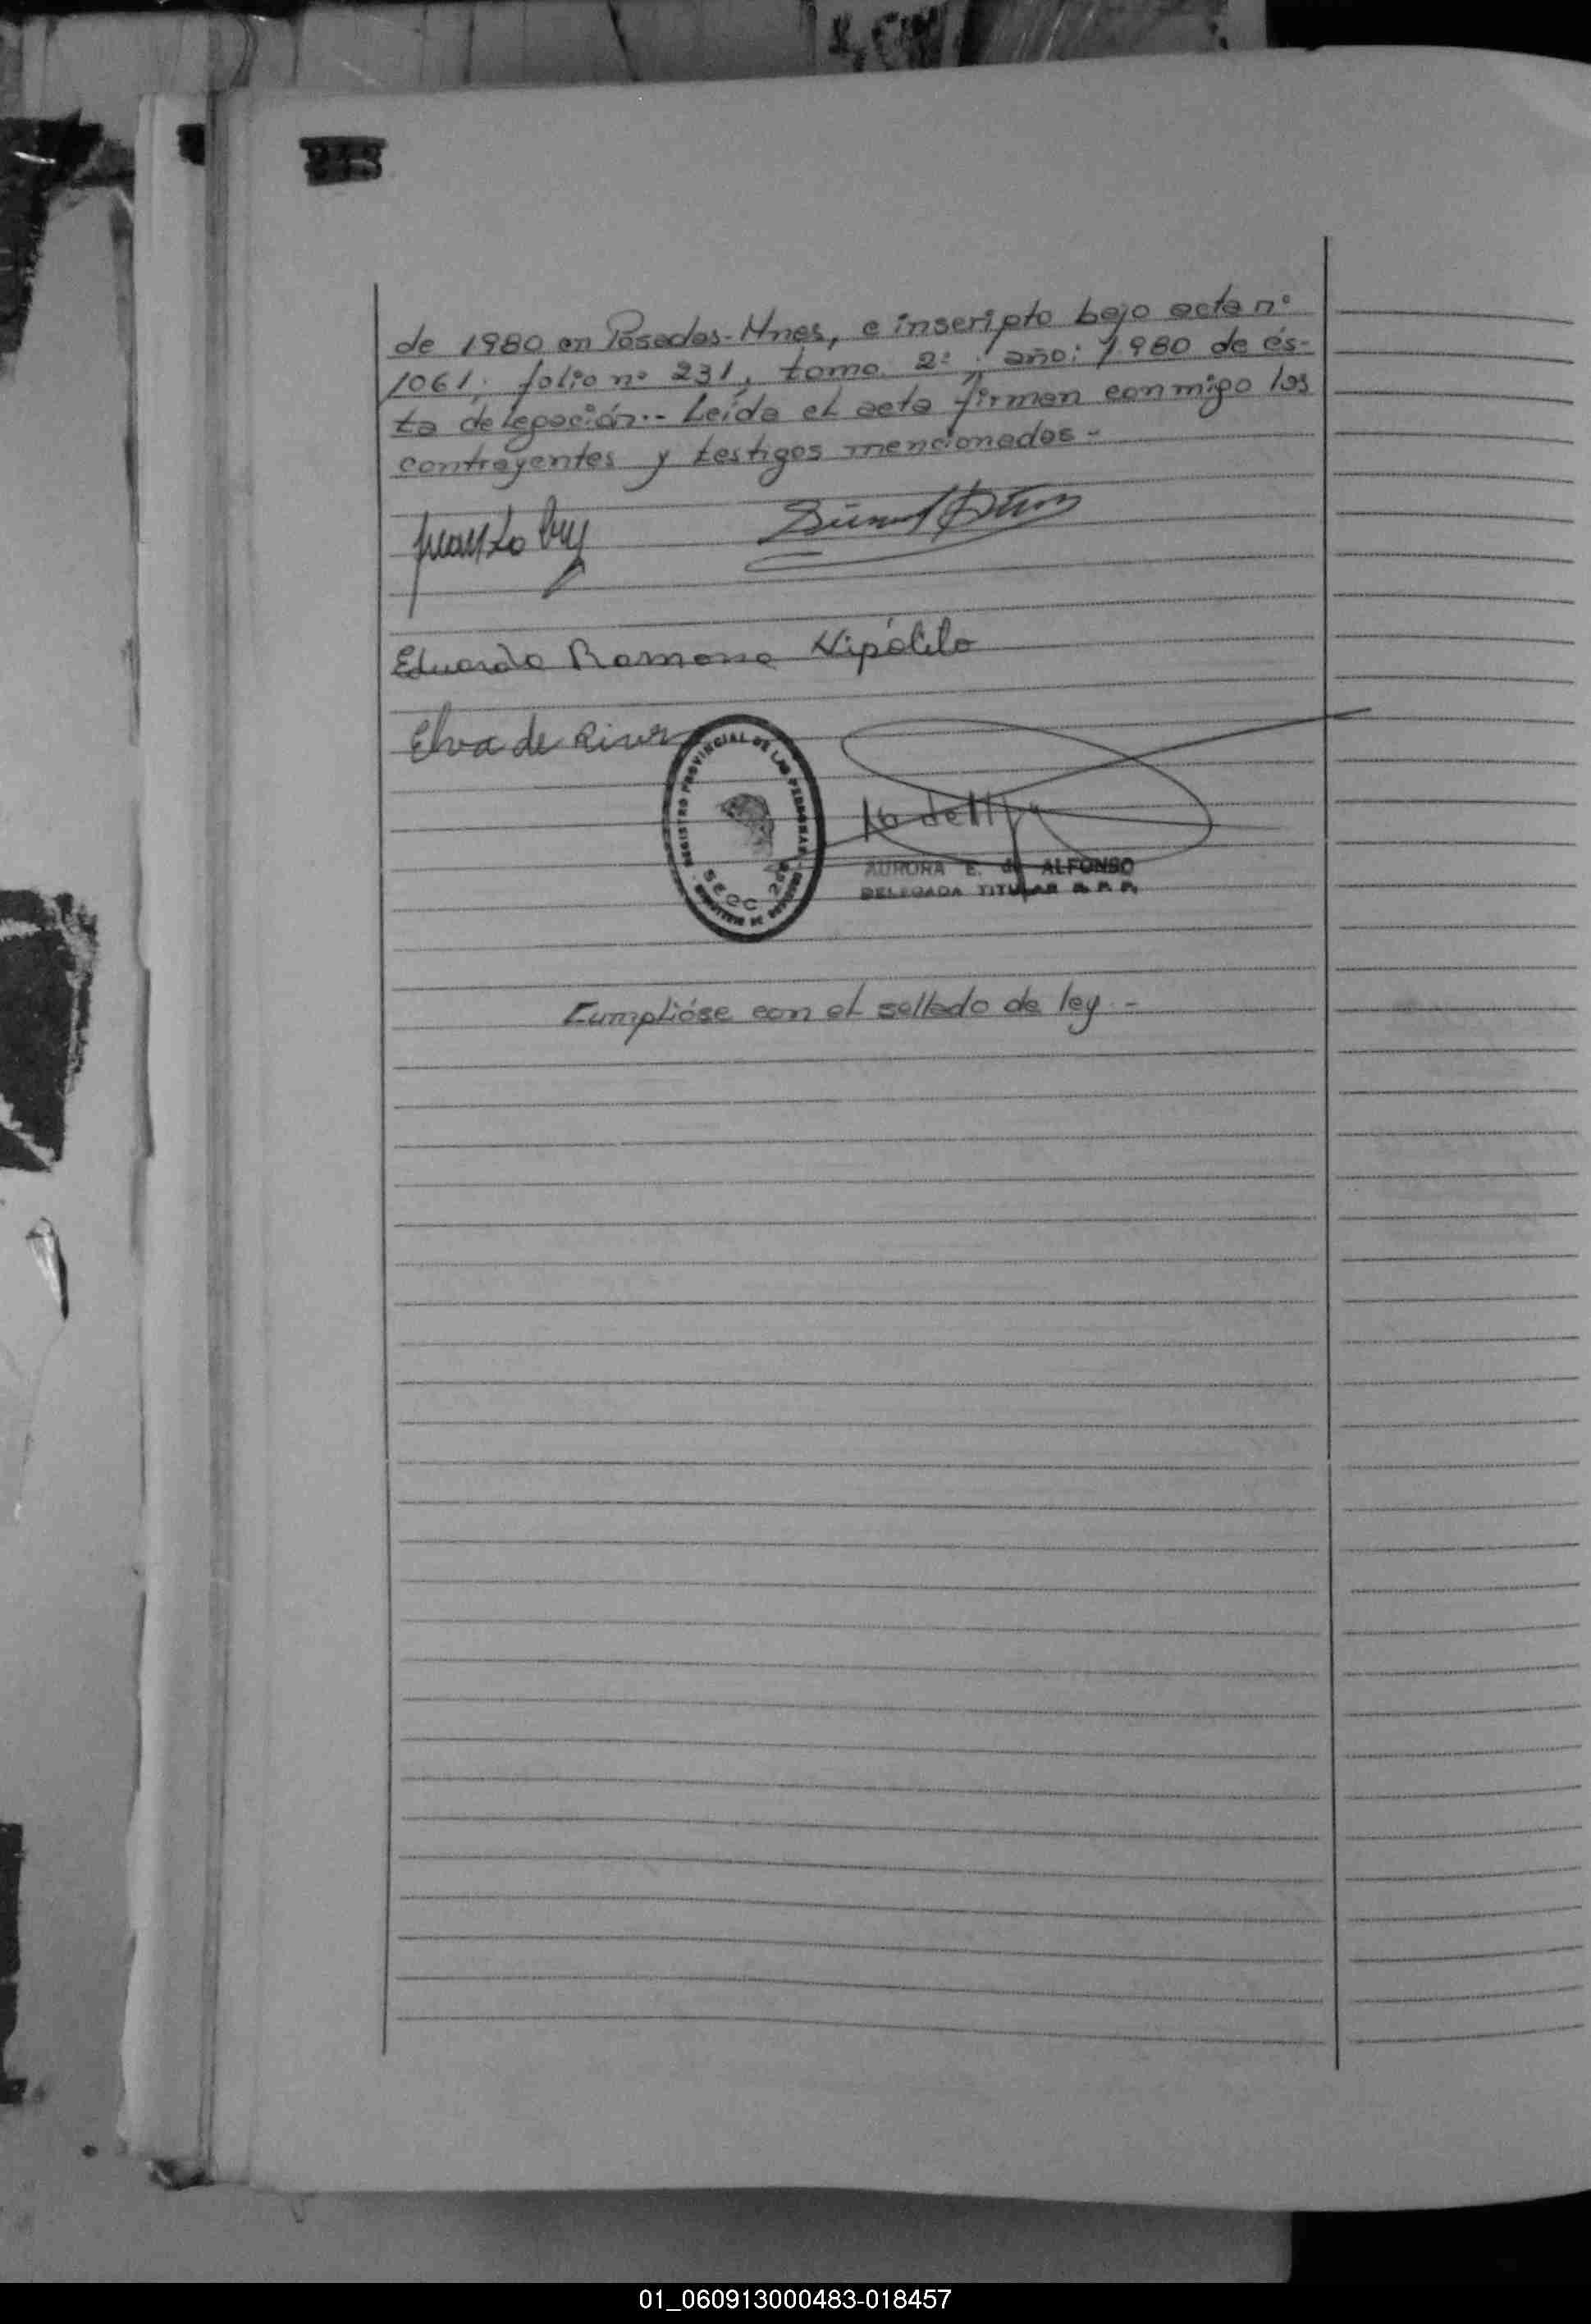 de 1980 en Posadas-Mnes, e inscripto bajo acta nº
1061, folio nº 231, tomo 2º, año: 1.980 de és-
ta delegación.- Leída el acta firman conmigo los
contrayentes y testigos mencionados.-
Eduardo Ramona Hipólito
Elva de River
REGISTRO PROVINCIAL DE LAS PERSONAS
SECC
AURORA E. de ALFONSO
DELEGADA TITULAR R. P. P.
Cumplióse con el sellado de ley.-
01_060913000483-018457